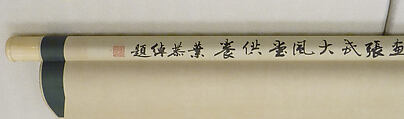 畫張氏大風堂供養 葉恭綽題